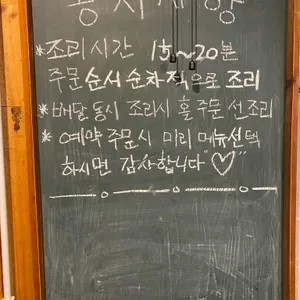 공지사항
*조리시간 15~20분
주문 순서 순차적으로 조리
*배달 동시 조리시 홀 주문 선조리
* 예약 주문시 미리 메뉴선택
하시면 감사합니다"♡"